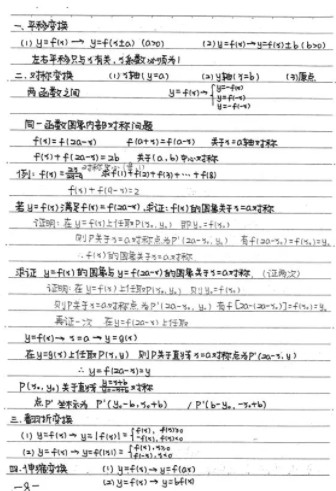 一、平移变换
(1) y=f(x)→ y=f(x±a) (a>0) (2) y=f(x)→y=f(x)±b (b>0)
左右平移只与x有关，x系数必须为1
二、对称变换 (1) x轴 (y=a) (2) y轴 (x=b) (3)原点
两函数之间 y=f(x)→ { y=-f(x)
y=f(-x)
y=-f(-x)
同一函数图象内部对称问题
f(x)=f(2a-x) f(a+x)=f(a-x) 关于x=a轴对称
f(x)+f(2a-x)=2b 关于(a,b)中心对称
例: f(x)= 求f(1)+f(2)+f(3)+…+f(8)
f(x)+f(9-x)=2
若y=f(x)满足f(x)=f(2a-x),求证:f(x)的图象关于x=a对称
证明: 在y=f(x)上任取P(x₀,y₀) 即y₀=f(x₀)
则P关于x=a对称点为P'(2a-x₀, y₀) 有f(2a-x₀)=f(x₀)=y₀
∴ f(x)的图象关于x=a对称
求证 y=f(x)的图象与y=f(2a-x)的图象关于x=a对称. (证两次)
证明: 在y=f(x)上任取P(x₀,y₀) 则y₀=f(x₀)
则P关于x=a对称点为P'(2a-x₀, y₀) 有f[2a-(2a-x₀)]=f(x₀)=y₀
再证一次 在y=f(2a-x)上任取
y=f(x)→ x=a → y=g(x)
在y=g(x)上任取P(x,y) 则P关于直线x=a对称点为P'(2a-x, y)
∴ y=f(2a-x)=y
P(x₀, y₀)关于直线 y=x+b y=-x+b 对称
点P'坐标为 P'(y₀-b, x₀+b) / P'(b-y₀, -x₀+b)
三、翻折变换
(1) y=f(x)→ y=|f(x)|= { f(x), f(x)≥0
-f(x), f(x)<0
(2) y=f(x)→ y=f(|x|)= { f(x), x≥0
f(-x), x<0
四、伸缩变换 (1) y=f(x)→ y=f(ax)
(2) y=f(x)→ y=bf(x)
-8-